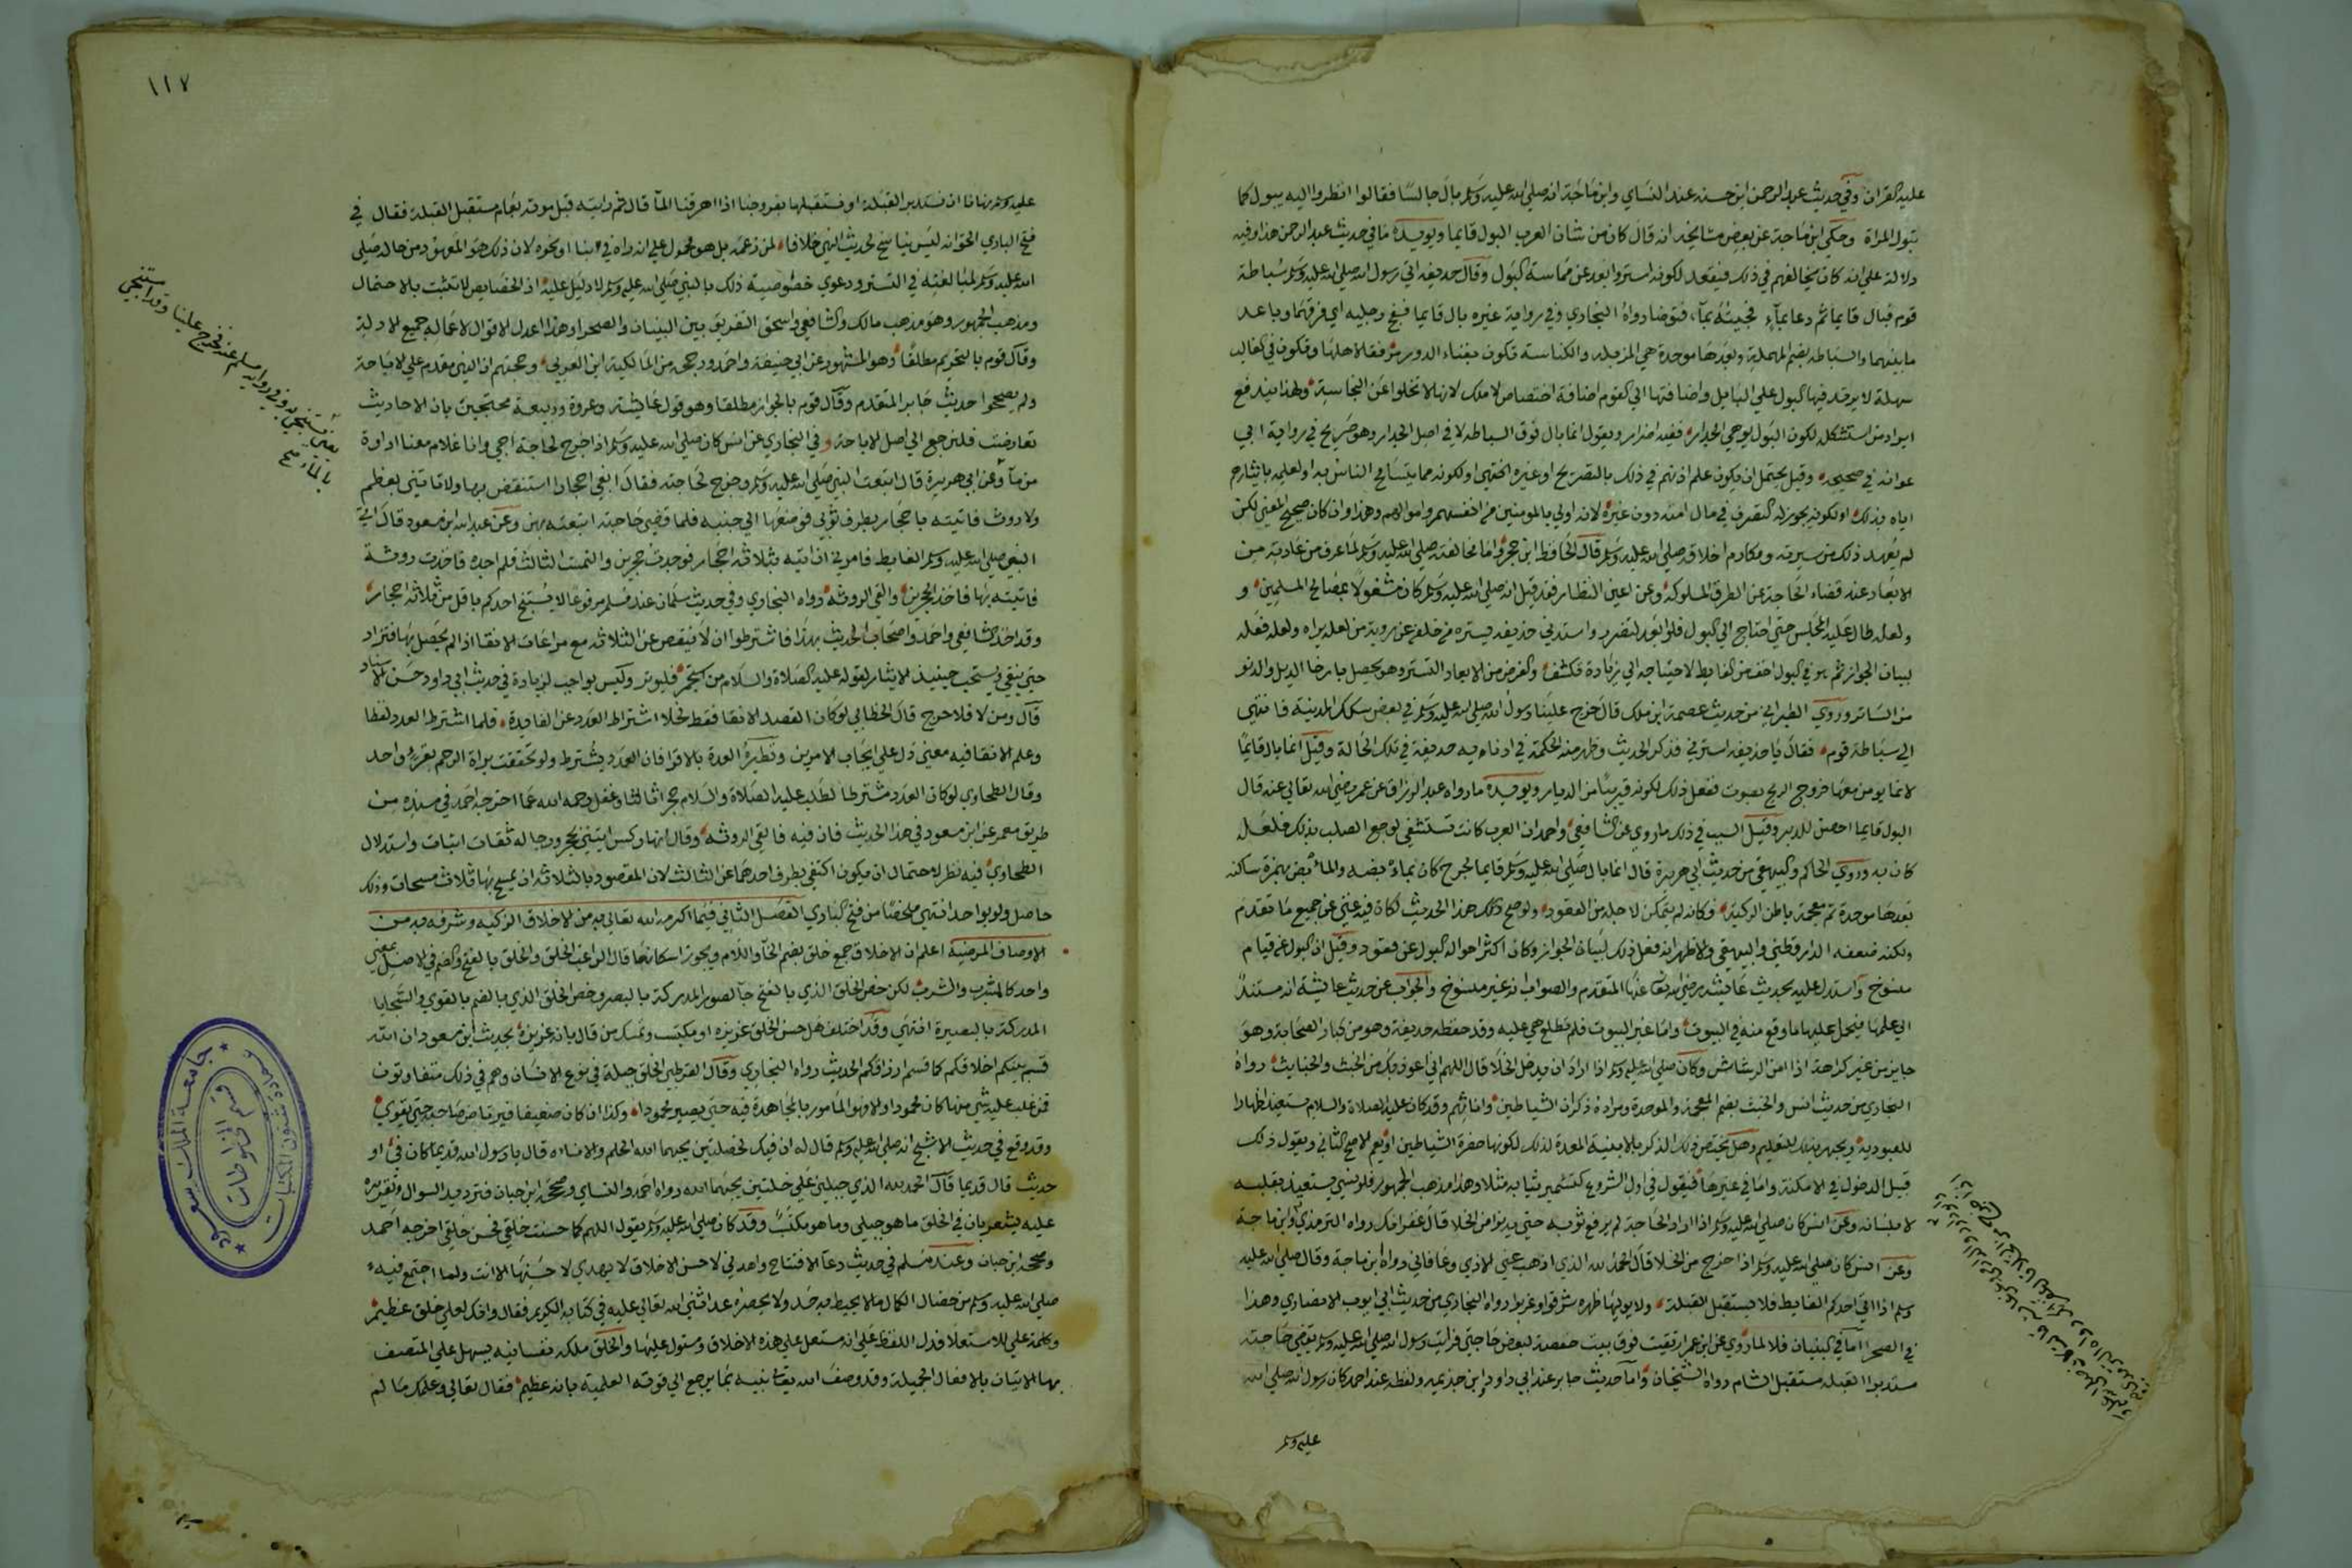 عليه القران وفي حديث عبد الرحمن ابن حسنه عند النساي وابن ماجة انه صلي الله عليه وسلم بال جالسا فقالوا انظروا اليه يبول كما
تبول المراة وحكي ابن ماجة عن بعض مشايخه انه قال كان من شان العرب البول قايما ويويده ما في حديث عبد الرحمن هذا وفيه
دلالة علي انه كان يخالفهم في ذلك فيقعد لكونه استر وابعد عن مماسة البول وقال حذيفه اتي رسول الله صلي الله عليه وسلم سباطة
قوم فبال قايما ثم دعا بمآء فجيته بمآء فتوضا رواه البخاري وفي رواية غيره بال قايما ففج رجليه اي فرقهما وباعد
ما بينهما والسباطه بضم المهملة وبعدها موحدة هي المزبله والكناسة تكون بفناء الدور مرفقا لاهلها وتكون في الغالب
سهلة لا يرتد فيها البول علي البايل واضافتها الي القوم اضافة اختصاص لا ملك لانها لا تخلوا عن النجاسة وبهذا يندفع
ايراد من استشكله لكون البول يوهي الجدار ففيه اضرار ويقول انما بال فوق السباطه لا في اصل الجدار وهو صريح في رواية ابي
عوانه في صحيحه وقيل يحتمل ان يكون علم اذنهم في ذلك بالتصريح او غيره انتهي او لكونه مما يتسامح الناس به او لعلمه بايثارهم
اياه بذلك او لكونه يجوز له التصرف في مال امته دون غيره لانه اولي بالمومنين من انفسهم واموالهم وهذا وان كان صحيح المعني لكن
لم يعهد ذلك من سيرته ومكارم اخلاقه صلي الله عليه وسلم قال الحافظ ابن حجر واما مخالفته صلي الله عليه وسلم لما عرف من عادته من
الابعاد عند قضاء الحاجة عن الطرق المسلوكه وعن اعين النظار فقد قيل انه صلي الله عليه وسلم كان مشغولا بمصالح المسلمين و
ولعله طال عليه المجلس حتي احتاج الي البول فلو ابعد لتضرر واستدني حذيفه ليستره من خلفه عن روية من لعله يراه ولعله فعله
لبيان الجواز ثم هو في البول اخف من الغايط لاحتياجه الي زيادة تكشف والغرض من الابعاد التستر وهو يحصل بارخا الذيل والدنو
من الساتر وروي الطبراني من حديث عصمة ابن ملك قال خرج علينا رسول الله صلي الله عليه وسلم في بعض سكك المدينة فانتهي
الي سباطة قوم فقال يا حذيفه استرني فذكر الحديث وظهر منه الحكمة في ادنايه حذيفة في تلك الحالة وقيل انما بال قايما
لانها يومن معها خروج الريح بصوت ففعل ذلك لكونه قريبا من الديار ويويده ما رواه عبد الرزاق عن عمر رضي الله تعالي عنه قال
البول قايما احصن للدبر وقيل السبب في ذلك ما روي عن الشافعي واحمد ان العرب كانت تستشفي لوجع الصلب بذلك فلعله
كان به وروي الحاكم والبيهقي من حديث ابي هريرة قال انما بال صلي الله عليه وسلم قايما لجرح كان بمأبضه والمأبض بهمزة ساكنه
بعدها موحدة ثم معجمة باطن الركبة وكانه لم يتمكن لاجله من القعود ولو صح ذلك هذا الحديث لكان فيه غني عن جميع ما تقدم
ولكنه ضعفه الدارقطني والبيهقي والاظهر انه فعل ذلك لبيان الجواز وكان اكثر احواله البول عن قعود وقيل ان البول عن قيام
منسوخ واستدل عليه بحديث عايشه رضي الله تعالي عنها المتقدم والصواب انه غير منسوخ والجواب عن حديث عايشة انه مستند
الي علمها فيحمل عليها ما وقع منه في البيوت واما غير البيوت فلم تطلع هي عليه وقد حفظه حذيفة وهو من كبار الصحابة وهو
جايز من غير كراهة اذا امن الرشاش وكان صلي الله عليه وسلم اذا اراد ان يدخل الخلا قال اللهم اني اعوذ بك من الخبث والخبايث رواه
البخاري من حديث انس والخبث بضم المعجمة والموحدة ومراده ذكران الشياطين واناثهم وقد كان عليه الصلاة والسلام يستعيذ اظهارا
للعبودية ويجهر بذلك للتعليم وهل يختص ذلك الذكر بالابنية المعدة لذلك لكونها حضرة الشياطين او يعم الاصح الثاني ويقول ذلك
قبيل الدخول في الامكنة واما في غيرها فيقول في اول الشروع كتشمير ثيابه مثلا وهذا مذهب الجمهور فلو نسي يستعيذ بقلبه
لا بلسانه وعن انس كان صلي الله عليه وسلم اذا اراد الحاجة لم يرفع ثوبه حتي يدنوا من الخلا قال غفرانك رواه الترمذي وابن ماجة
وعن انس كان صلي الله عليه وسلم اذا خرج من الخلا قال الحمد لله الذي اذهب عني الاذي وعافاني رواه ابن ماجة وقال صلي الله عليه
وسلم اذا اتي احدكم الغايط فلا يستقبل القبلة ولا يوليها ظهره شرقوا وغربوا رواه البخاري من حديث ابي ايوب الانصاري وهذا
في الصحرا اما في البنيان فلا لما روي عن ابن عمر ارتقيت فوق بيت حفصة لبعض حاجتي فرايت رسول الله صلي الله عليه وسلم يقضي حاجته
مستدبرا القبله مستقبل الشام رواه الشيخان واما حديث جابر عند ابي داود وابن خذيمه ولفظه عند احمد كان رسول الله صلي الله
عليه وسلم
١١٧
عليه وسلم ينهانا ان نستدبر القبلة او نستقبلها بفروجنا اذا اهرقنا المآ قال ثم رايته قبل موته بعام مستقبل القبلة فقال في
فتح الباري الحق انه ليس بناسخ لحديث النهي خلافا لمن زعمه بل هو محمول علي انه راه في بنا او نحوه لان ذلك هو المعهود من حاله صلي
الله عليه وسلم لمبالغته في التستر ودعوي خصوصية ذلك بالنبي صلي الله عليه وسلم لا دليل عليه اذ الخصايص لا تثبت بالاحتمال
ومذهب الجمهور وهو مذهب مالك والشافعي واسحق التفريق بين البنيان والصحرا وهذا اعدل الاقوال لاعماله جميع الادلة
وقال قوم بالتحريم مطلقا وهو المشهور عن ابي حنيفة واحمد ورجحه من المالكية ابن العربي وحجتهم ان النهي مقدم علي الاباحة
ولم يصححوا حديث جابر المتقدم وقال قوم بالجواز مطلقا وهو قول عايشة وعروة وربيعة محتجين بان الاحاديث
تعارضت فلنرجع الي اصل الاباحة وفي البخاري عن انس كان صلي الله عليه وسلم اذا خرج لحاجته اجي وانا غلام معنا اداوة
من مآ وعن ابي هريرة قال اتبعت النبي صلي الله عليه وسلم وخرج لحاجته فقال ابغي احجارا استنفض بها ولا تاتيني بعظم
ولا روث فاتيته باحجار بطرف ثوبي فوضعتها الي جنبه فلما قضي حاجته اتبعته بهن وعن عبد الله ابن مسعود قال اتي
النبي صلي الله عليه وسلم الغايط فامرني ان اتيه بثلاثة احجار فوجدت حجرين والتمست الثالث فلم اجده فاخذت روثة
فاتيته بها فاخذ الحجرين والقي الروثه رواه البخاري وفي حديث سلمان عند مسلم مرفوعا لا يستنج احدكم باقل من ثلاثة احجار
وقد اخذ الشافعي واحمد واصحاب الحديث بهذا فاشترطوا ان لا ينقص عن الثلاثه مع مراعات الانقا اذا لم يحصل بها فتزاد
حتي ينقي ويستحب حينيذ الايثار لقوله عليه الصلاة والسلام من استجمر فليوتر وليس بواجب لزيادة في حديث ابي داود حسن الاسناد
قال ومن لا فلا حرج قال الخطابي لو كان القصد الانقا فقط لخلا اشتراط العدد عن الفايدة فلما اشترط العدد لفظا
وعلم الانقا فيه معني دل علي ايجاب الامرين ونظيره العدة بالاقرا فان العدد يشترط ولو تحققت براة الرحم بقرء واحد
وقال الطحاوي لو كان العدد مشترطا لطلب عليه الصلاة والسلام حجرا ثالثا وغفل رحمه الله عما اخرجه احمد في مسنده من
طريق معمر عن ابن مسعود في هذا الحديث فان فيه فالقي الروثه وقال انها ركس ايتيني بحجر ورجاله ثقات اثبات واستدلال
الطحاوي فيه نظر لاحتمال ان يكون اكتفي بطرف احدهما عن الثالث لان المقصود بالثلاثه ان يمسح بها ثلاث مسحات وذلك
حاصل ولو بواحد انتهي ملخصا من فتح الباري الفصل الثاني فيما اكرمه الله تعالي به من الاخلاق الزكيه وشرفه به من
الاوصاف المرضية اعلم ان الاخلاق جمع خلق بضم الخآ واللام ويجوز اسكانها قال الراغب الخلق والخلق بالفتح والضم في الاصل بمعني
واحد كالشرب والشرب لكن خص الخلق الذي بالفتح بالصور المدركة بالبصر وخص الخلق الذي بالضم بالقوي والسجايا
المدركة بالبصيرة انتهي وقد اختلف هل حسن الخلق غريزه او مكتسب وتمسك من قال بانه غريزة بحديث ابن مسعود ان الله
قسم بينكم اخلاقكم كما قسم ارزاقكم الحديث رواه البخاري وقال القرطبي الخلق جبلة في نوع الانسان وهم في ذلك متفاوتون
فمن غلب عليه شي منها كان محمودا والا فهو المامور بالمجاهدة فيه حتي يصير محمودا وكذا ان كان ضعيفا فيرتاض صاحبه حتي يقوي
وقد وقع في حديث الاشج انه صلي الله عليه وسلم قال له ان فيك لخصلتين يحبهما الله الحلم والاناه قال يا رسول الله قديما كان في او
حديث قال قديما قال الحمد لله الذي جبلني علي خلتين يحبهما الله رواه احمد والنساي وصححه ابن حبان فترديد السوال وتقريره
عليه يشعر بان في الخلق ما هو جبلي وما هو مكتسب وقد كان صلي الله عليه وسلم يقول اللهم كما حسنت خلقي فحسن خلقي اخرجه احمد
وصححه ابن حبان وعند مسلم في حديث دعآ الافتتاح واهدني لاحسن الاخلاق لا يهدي لاحسنها الا انت ولما اجتمع فيه
صلي الله عليه وسلم من خصال الكمال ما لا يحيط به حد ولا يحصره عد اثني الله تعالي عليه في كتابه الكريم فقال وانك لعلي خلق عظيم
وكلمة علي للاستعلا فدل اللفظ علي انه مستعل علي هذه الاخلاق ومستول عليها والخلق ملكه نفسانيه يسهل علي المتصف
بها الاتيان بالافعال الجميلة وقد وصف الله تعالي نبيه بما يرجع الي قوته العلمية بانه عظيم فقال تعالي وعلمك ما لم
يعني يستنجي به وفي رواية مسلم عنه فخرج علينا وقد استنجي
بالماء صح
جامعة الملك سعود
عمادة شئون المكتبات
قسم المخطوطات